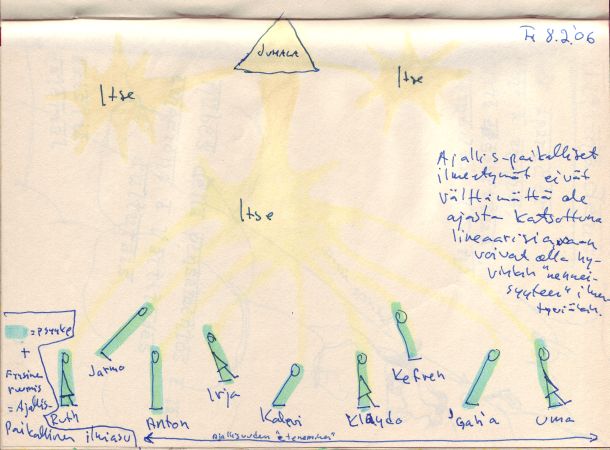 Ti 8.2.'06
JUMALA
Itse
Itse
Itse
Ajallis-paikalliset
ilmestymät eivät
välttämättä ole
ajasta katsottuna
lineaarisia, vaan
voivat olla hy-
vinkin
ilmen-
= psyyke
+
Fyysinen
ruumis
= Ajallis-
Paikallinen ilmiasu
Ruth
Jarmo
Anton
Irja
Kalevi
Klaydo
Kefren
Galia
Uma
Ajallisuuden "eteneminen"